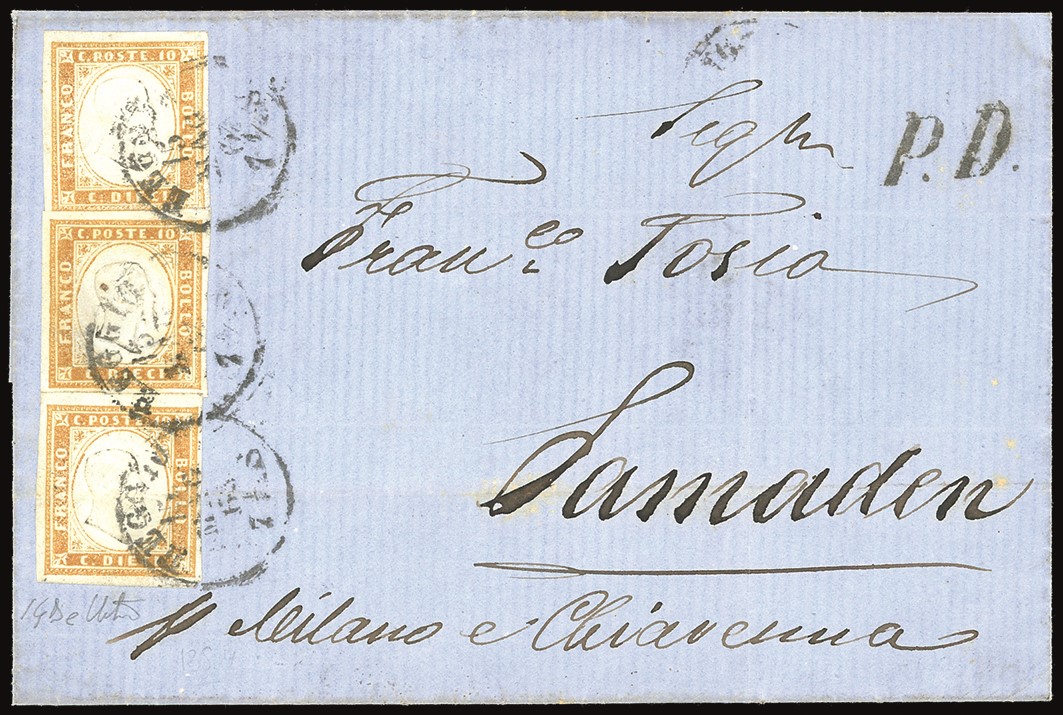 C. POSTE. 10
FRANCO
BOLLO
C. DIECI
C. POSTE. 10
FRANCO
BOLLO
C. DIECI
C. POSTE. 10
FRANCO
BOLLO
C. DIECI
REGGIO
P. D.
Sigr
Fran.co Tosio
Samaden
p Milano e Chiavenna